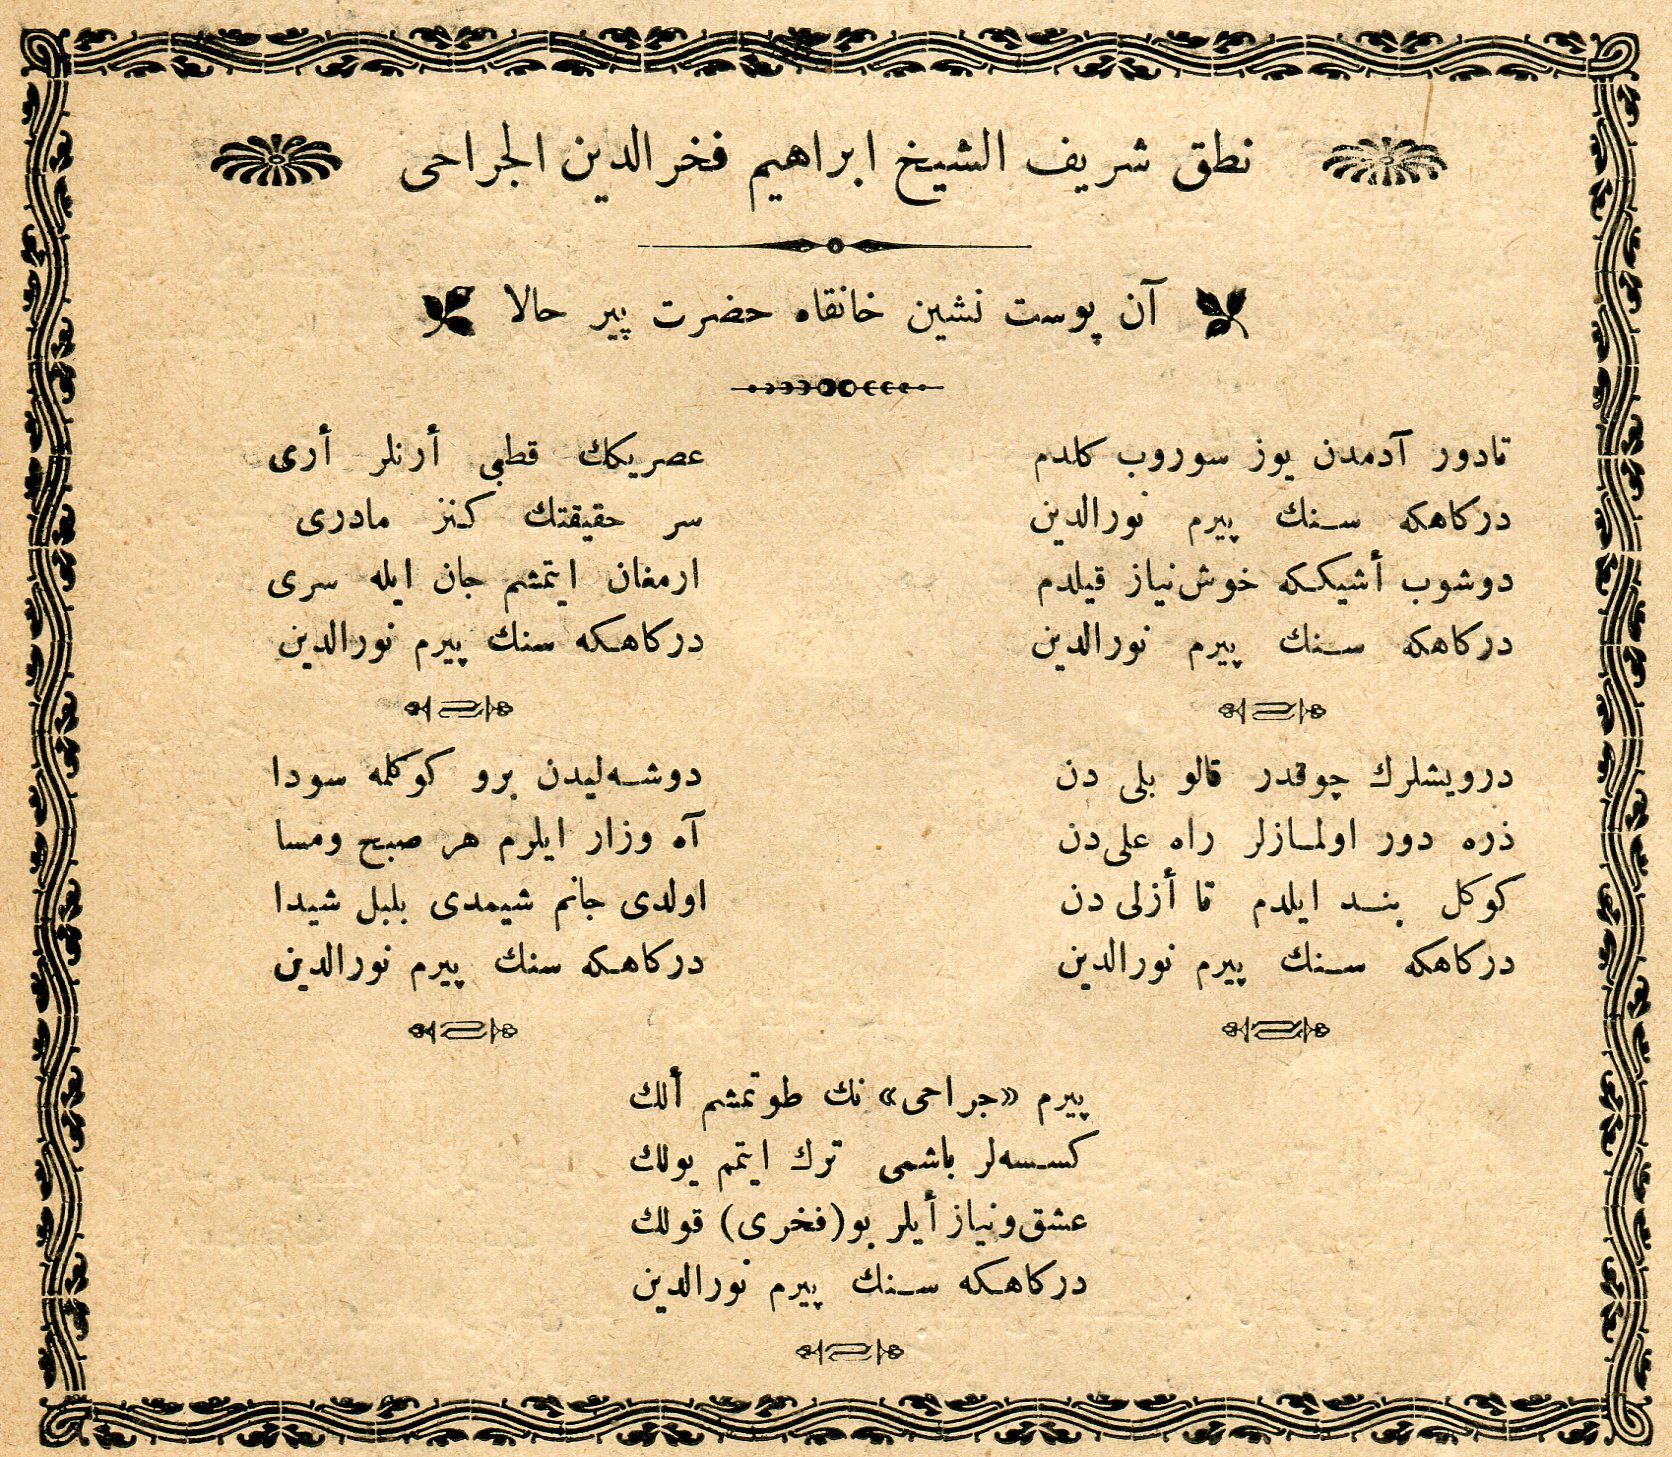 نطق شريف الشيخ ابراهيم فخرالدين الجراحى
آن پوست نشين خانقاه حضرت پير حالا
تادور آدمدن يوز سوروب كلدم
دركاهكه سنك پيرم نورالدين
دوشوب أشيككه خوش نياز قيلدم
دركاهكه سنك پيرم نورالدين
عصريكك قطبى أرنلر أرى
سر حقيقتك كنز مادرى
ارمغان ايتمشم جان ايله سرى
دركاهكه سنك پيرم نورالدين
درويشلرك چوقدر قالو بلى دن
ذره دور اولمازلر راه على دن
كوكل بند ايلدم تا أزلى دن
دركاهكه سنك پيرم نورالدين
دوشه‌ليدن برو كوكلمه سودا
آه وزار ايلرم هر صبح ومسا
اولدى جانم شيمدى بلبل شيدا
دركاهكه سنك پيرم نورالدين
پيرم «جراحى» نك طوتمشم ألك
كسسه‌لر باشمى ترك ايتمم يولك
عشق ونياز أيلر بو (فخرى) قولك
دركاهكه سنك پيرم نورالدين